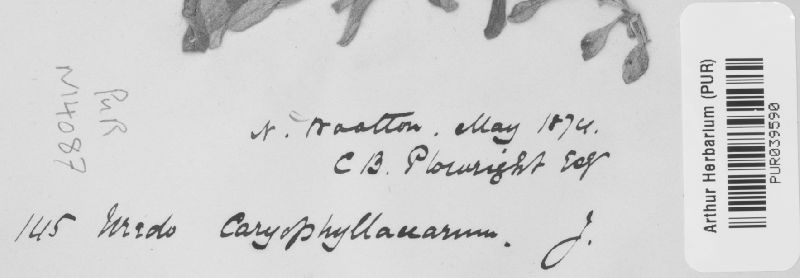 N. Wootton. May 1874.
C B. Plowright Esq
145 Uredo Caryophyllacearum. J.
PUR
N14087
Arthur Herbarium (PUR)
PUR039590